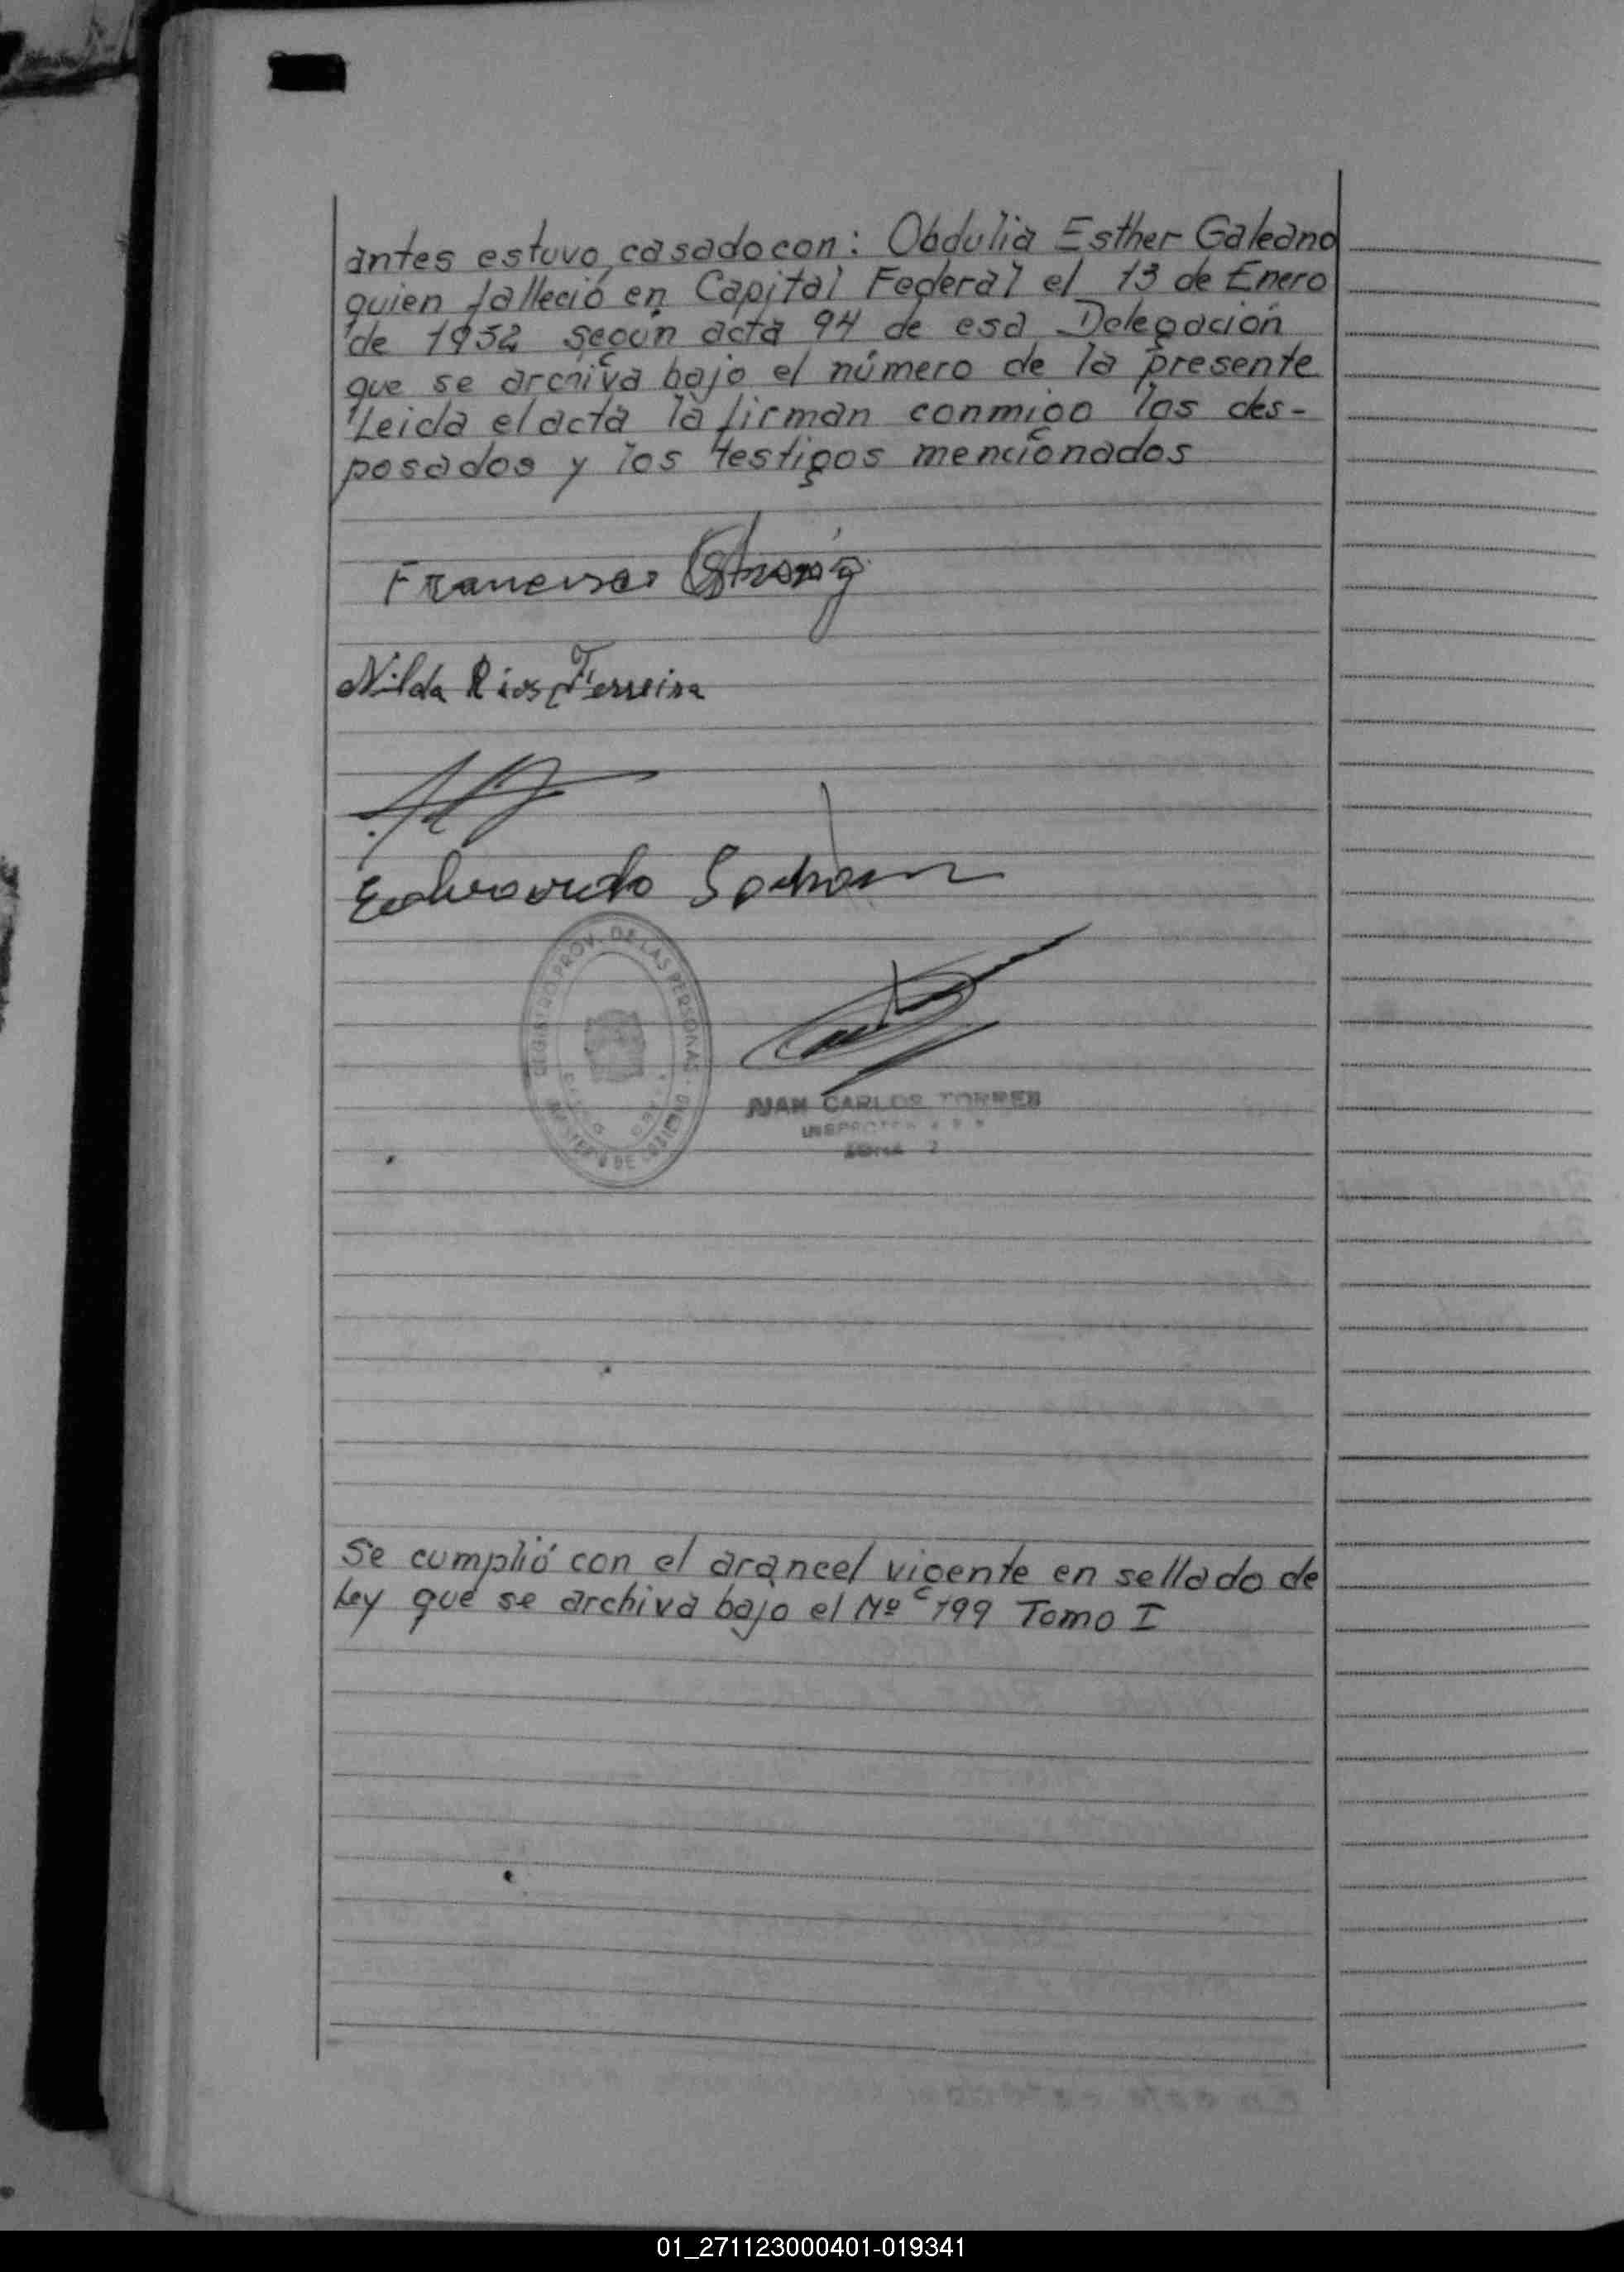 antes estuvo casado con: Obdulia Esther Galeano
quien falleció en Capital Federal el 13 de Enero
de 1952 según acta 94 de esa Delegación
que se archiva bajo el número de la presente
Leida el acta la firman conmigo los des-
posados y los testigos mencionados
Francisco
Nilda Rios Ferreira
Eduardo
REGISTRO PROV. DE LAS PERSONAS
JUAN CARLOS TORRES
INSPECTOR
ZONA 2
Se cumplió con el arancel vigente en sellado de
Ley que se archiva bajo el Nº 199 Tomo I
01_271123000401-019341